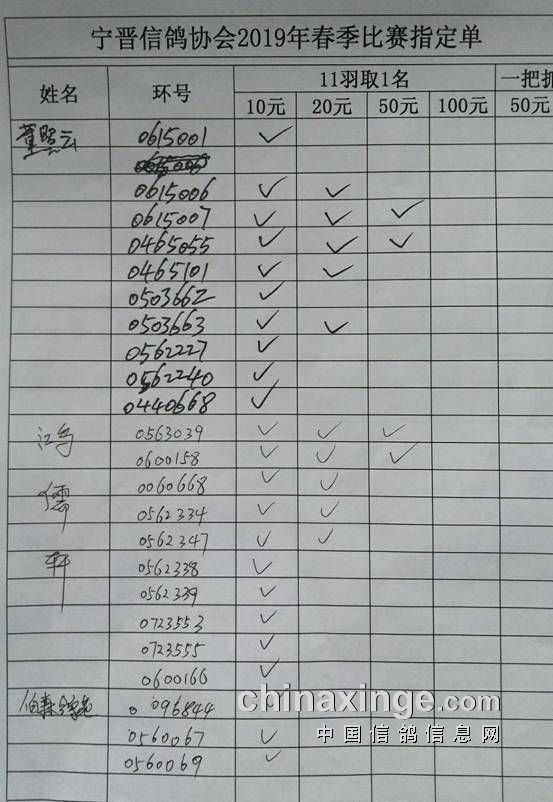 宁晋信鸽协会2019年春季比赛指定单
姓名 环号 11羽取1名 一把抓
10元 20元 50元 100元 50元
董照云 0615001 ✓
0615006 ✓ ✓
0615007 ✓ ✓ ✓
0465055 ✓ ✓ ✓
0465101 ✓ ✓
0503662 ✓
0503663 ✓ ✓
0562227 ✓
0562240 ✓
0440668 ✓
0563039 ✓ ✓ ✓
0600158 ✓ ✓ ✓
儒 0060668 ✓ ✓
0562334 ✓ ✓
0562347 ✓ ✓
轩 0562338 ✓
0562339 ✓
0723553 ✓
0723555 ✓
0600166 ✓
0096844 ✓
0560067 ✓
0560069 ✓
chinaxinge.com
中国信鸽信息网